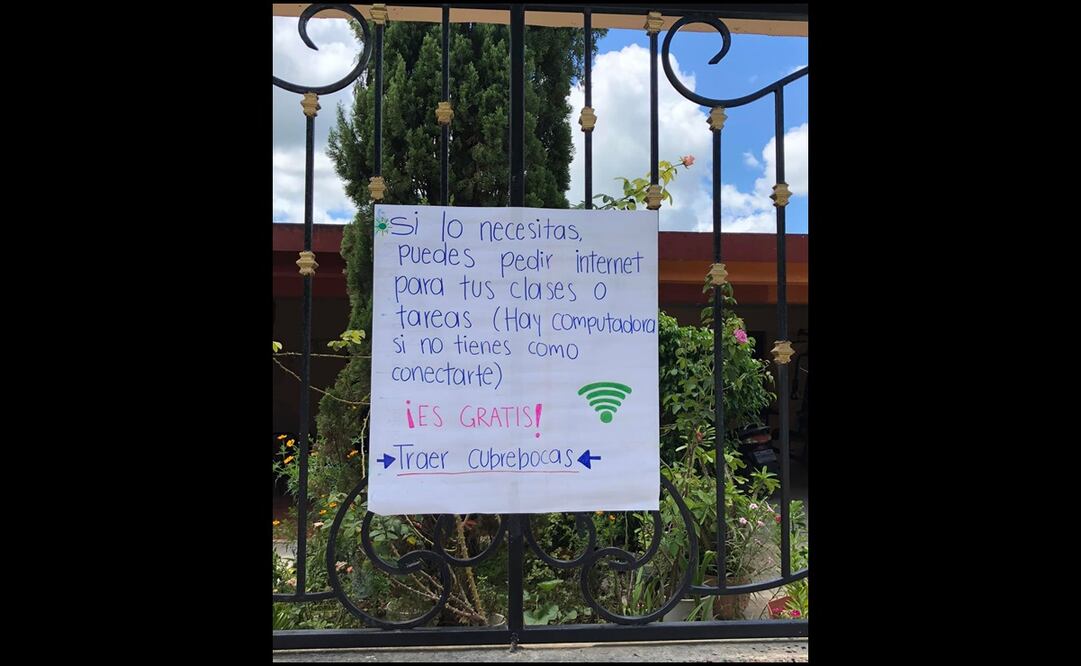 Si lo necesitas,
puedes pedir internet
para tus clases o
tareas (Hay computadora
si no tienes como
conectarte)
¡ES GRATIS!
Traer cubrebocas